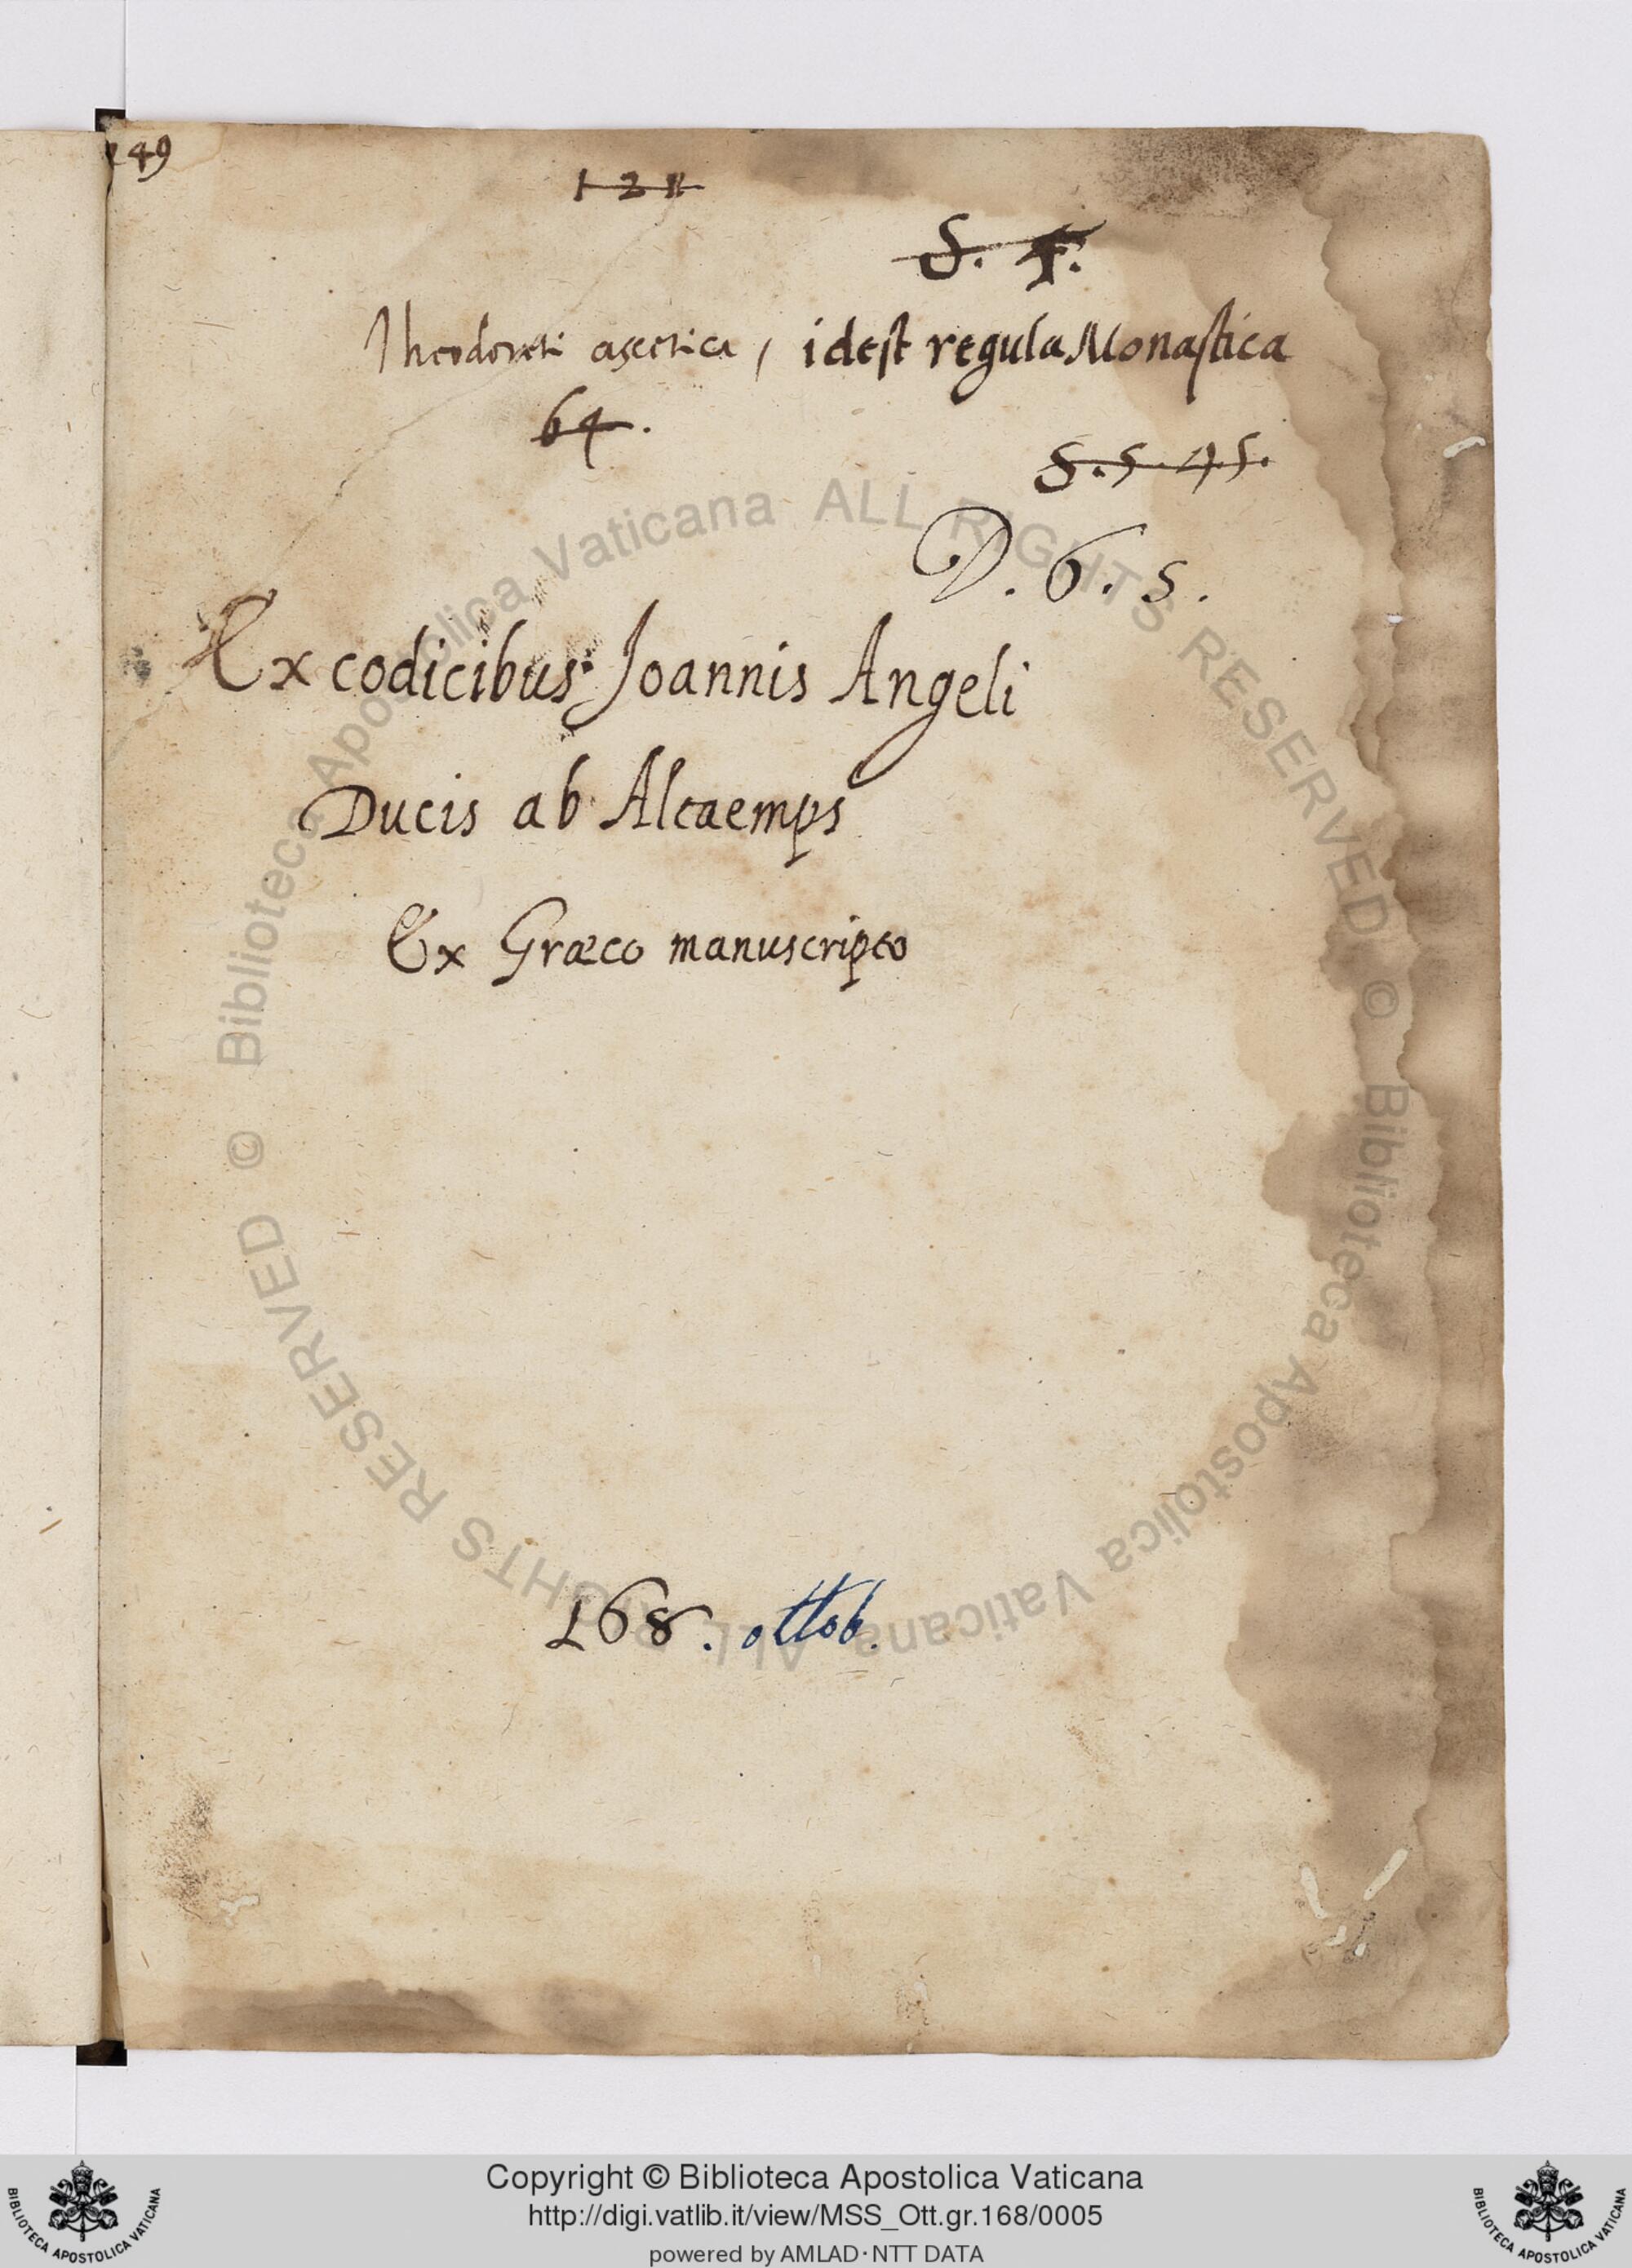 149
S. 4.
Theodoreti ascetica, idest regula Monastica
64.
S. 5. 45.
D. 6. 5.
Ex codicibus Joannis Angeli
Ducis ab Altaemps
Ex Græco manuscripto
168. ottob.
© Biblioteca Apostolica Vaticana ALL RIGHTS RESERVED
© Biblioteca Apostolica Vaticana ALL RIGHTS RESERVED
BIBLIOTECA APOSTOLICA VATICANA
Copyright © Biblioteca Apostolica Vaticana
http://digi.vatlib.it/view/MSS_Ott.gr.168/0005
powered by AMLAD·NTT DATA
BIBLIOTECA APOSTOLICA VATICANA